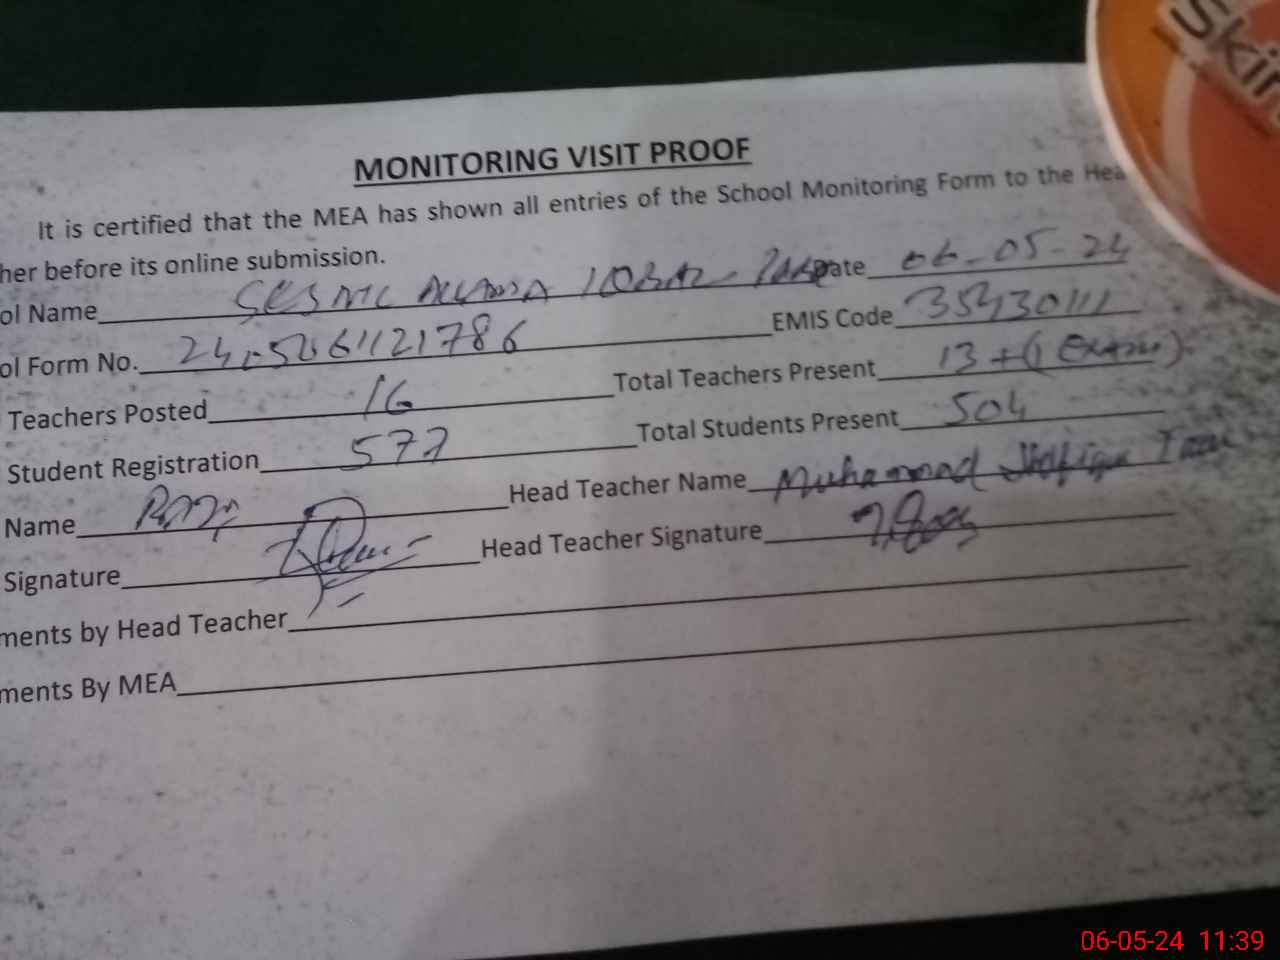 Skin
MONITORING VISIT PROOF
It is certified that the MEA has shown all entries of the School Monitoring Form to the Hea
her before its online submission.
ol Name ALLAMA IQBAL ate 06-05-24
ol Form No. EMIS Code 35430111
Teachers Posted 16 Total Teachers Present 13+(1 Extra)
Student Registration 577 Total Students Present 504
Name Head Teacher Name Muhammad
Signature Head Teacher Signature
ments by Head Teacher
ments By MEA
06-05-24 11:39